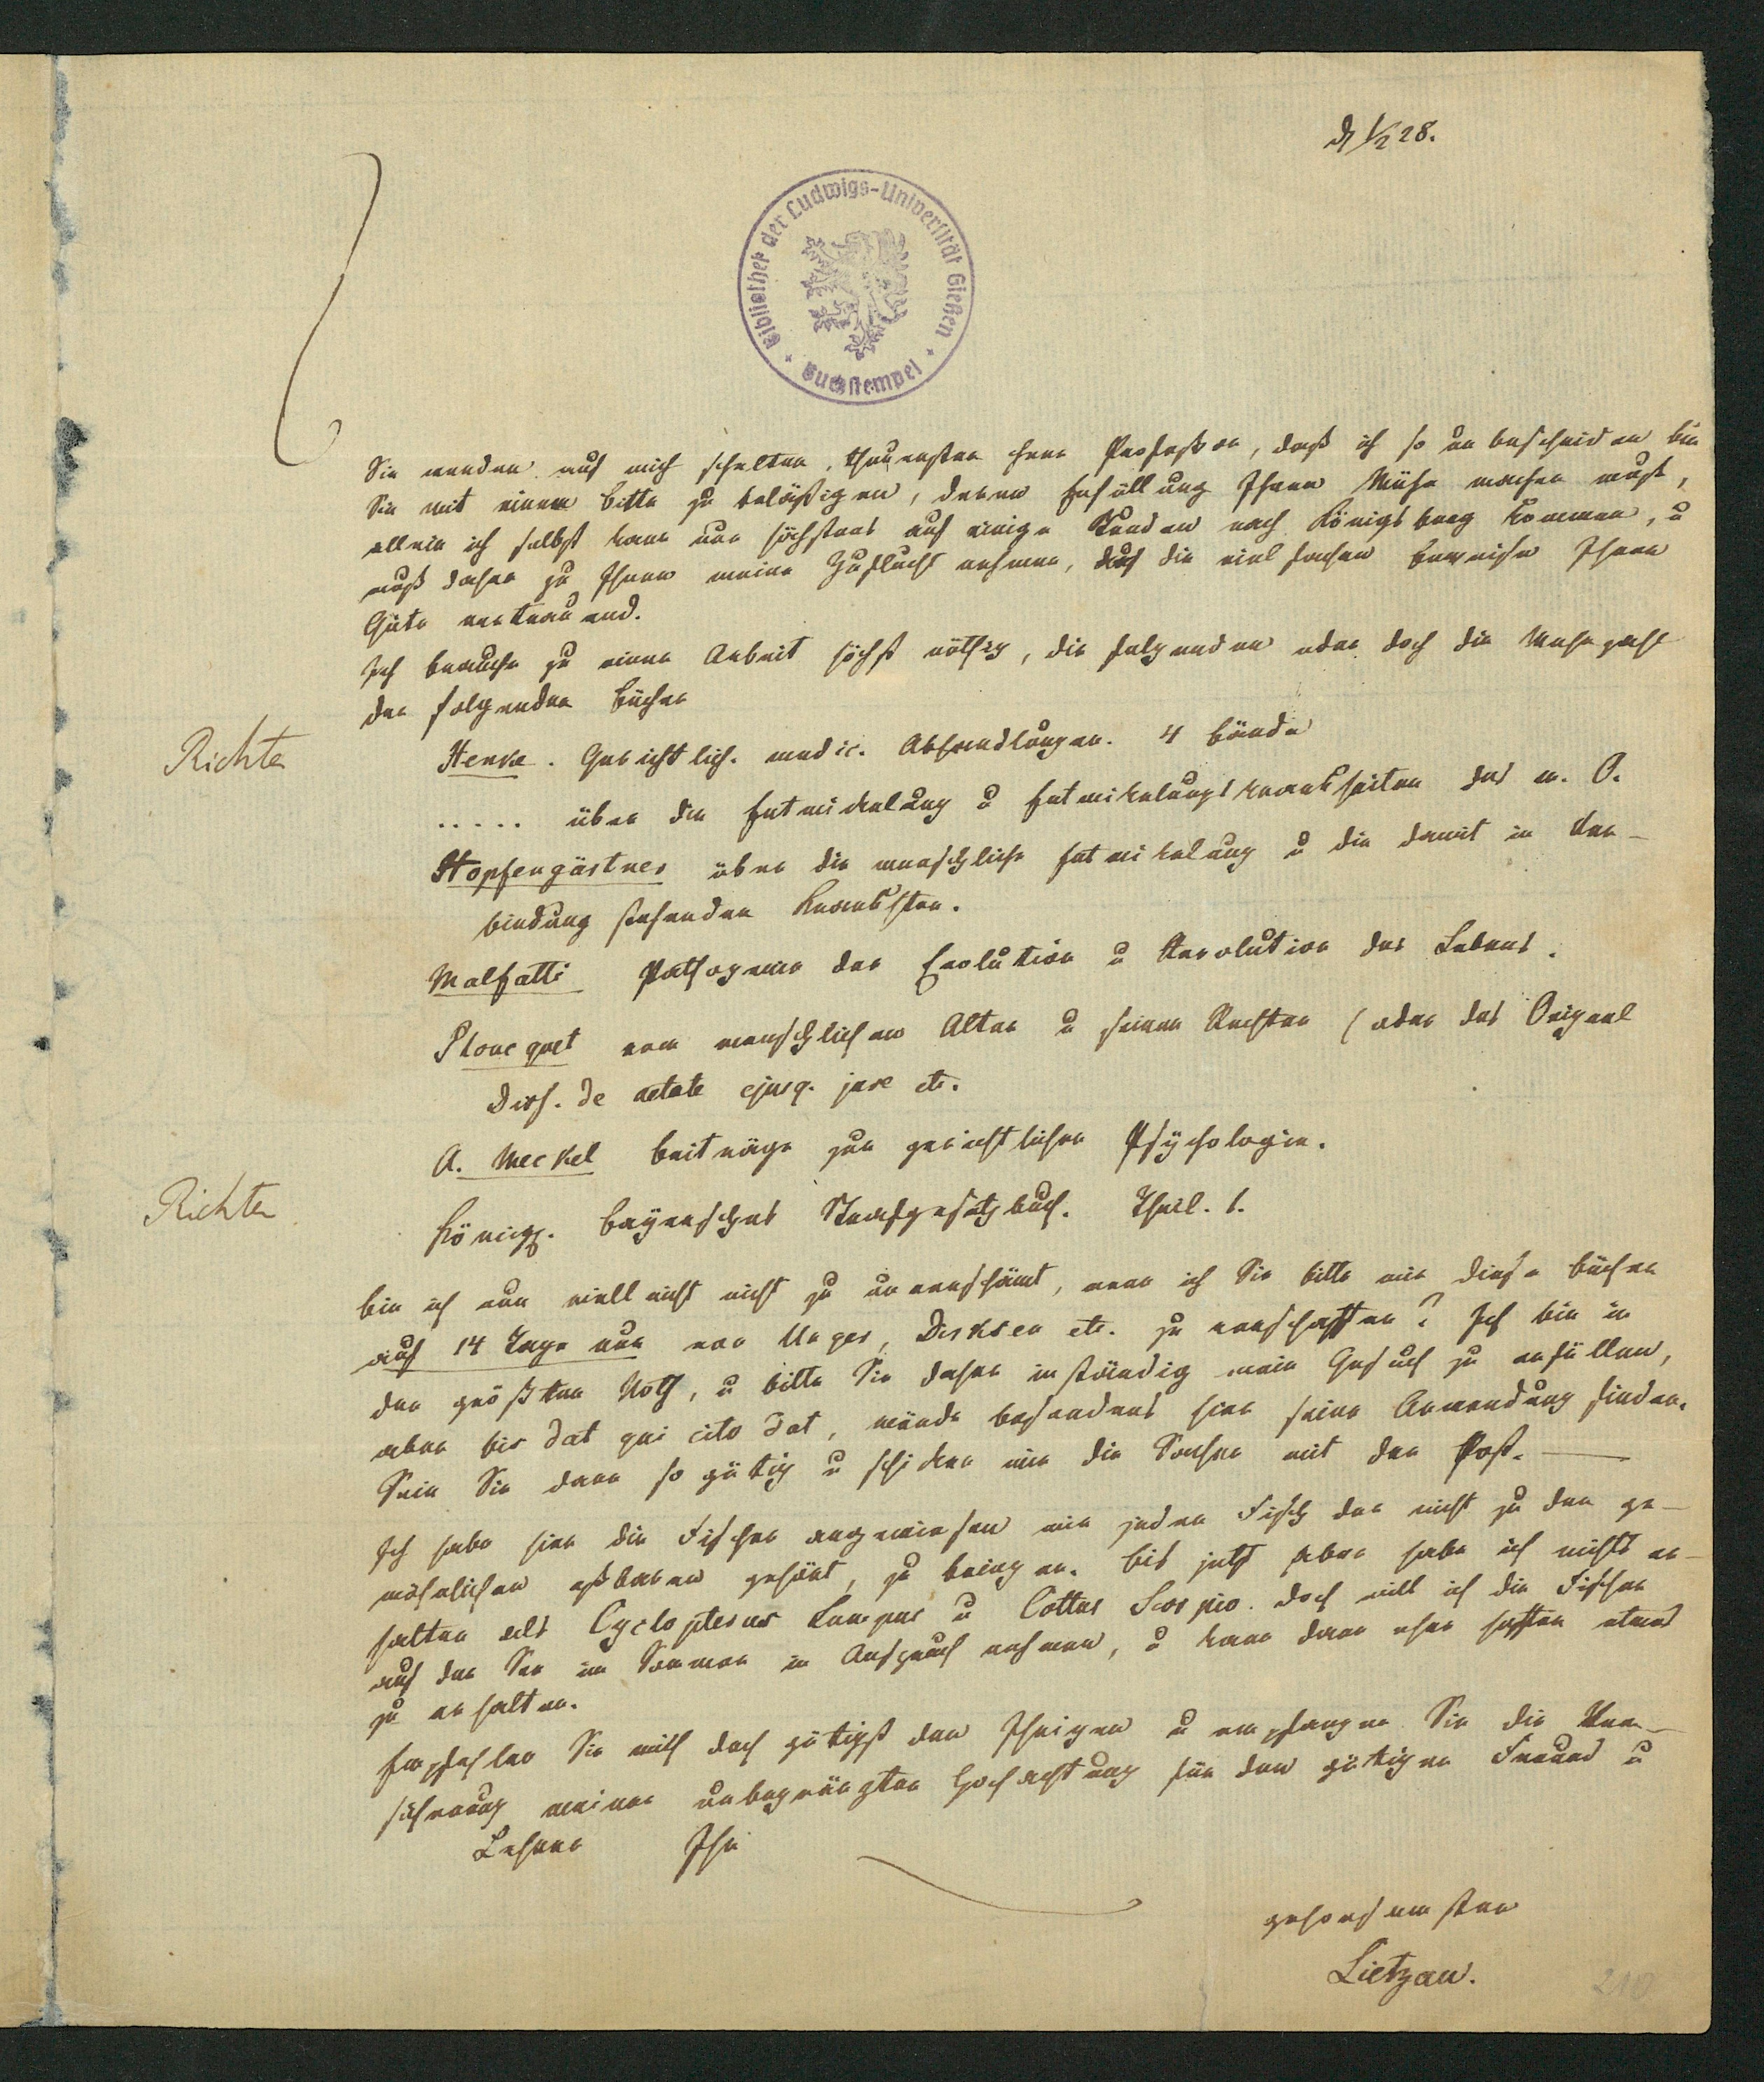 d 1/2 28.
Bibliothek der Ludwigs-Universität Gießen
Buchstempel
Sie werden auf mich schelten, theuerster Herr Professor, daß ich so unbescheiden bin
Sie mit einer Bitte zu belästigen, deren Erfüllung Ihnen Mühe machen muß,
allein ich selbst kann nur höchstens auf einige Stunden nach Königsberg kommen, u
muß daher zu Ihnen meine Zuflucht nehmen, auf die vielfachen Beweise Ihrer
Güte vertrauend.
Ich brauche zu einer Arbeit höchst nöthig, die folgenden oder doch die Mehrzahl
der folgenden Bücher
Richter
Henke. Gerichtlich. medic. Abhandlungen. 4 Bände
..... über die Entwickelung u Entwickelungskrankheiten des m. O.
Hopfengärtner über die menschliche Entwickelung u die damit in Ver-
bindung stehenden Krankhten.
Malfatti Pathogenie der Evolution u Revolution des Lebens.
Ploucquet vom menschlichen Alter u seinen Rechten (oder das Orignal
Diss. de aetate ejusq. jure etc.
A. Meckel Beiträge zur gerichtlichen Psychologie.
Richter
Königl. Bayersches Strafgesetzbuch. Theil. 1.
Bin ich nun vielleicht nicht zu unverschämt, wenn ich Sie bitte mir diese Bücher
auf 14 Tage nur von Unger, Dirksen etc. zu verschaffen? Ich bin in
der größten Noth, u bitte Sie daher inständig mein Gesuch zu erfüllen,
aber bis dat qui cito dat, würde besonders hier seine Anwendung finden.
Sein Sie dann so gütig u schicken mir die Sachen mit der Post.
Ich habe hier die Fischer angewiesen mir jeden Fisch der nicht zu den ge-
wöhnlichen eßbaren gehört, zu bringen. Bis jetzt aber habe ich nichts er-
halten als Cyclopterus Lumpus u Cottus Scorpio. doch will ich die Fischer
auf der See im Sommer in Anspruch nehmen, u kann dann eher hoffen etwas
zu erhalten.
Empfehlen Sie mich doch gütigst den Ihrigen u empfangen Sie die Ver-
sicherung meiner unbegränzten Hochachtung für den gütigen Freund u
Lehrer Ihr
gehorsamster
Lietzau.
210